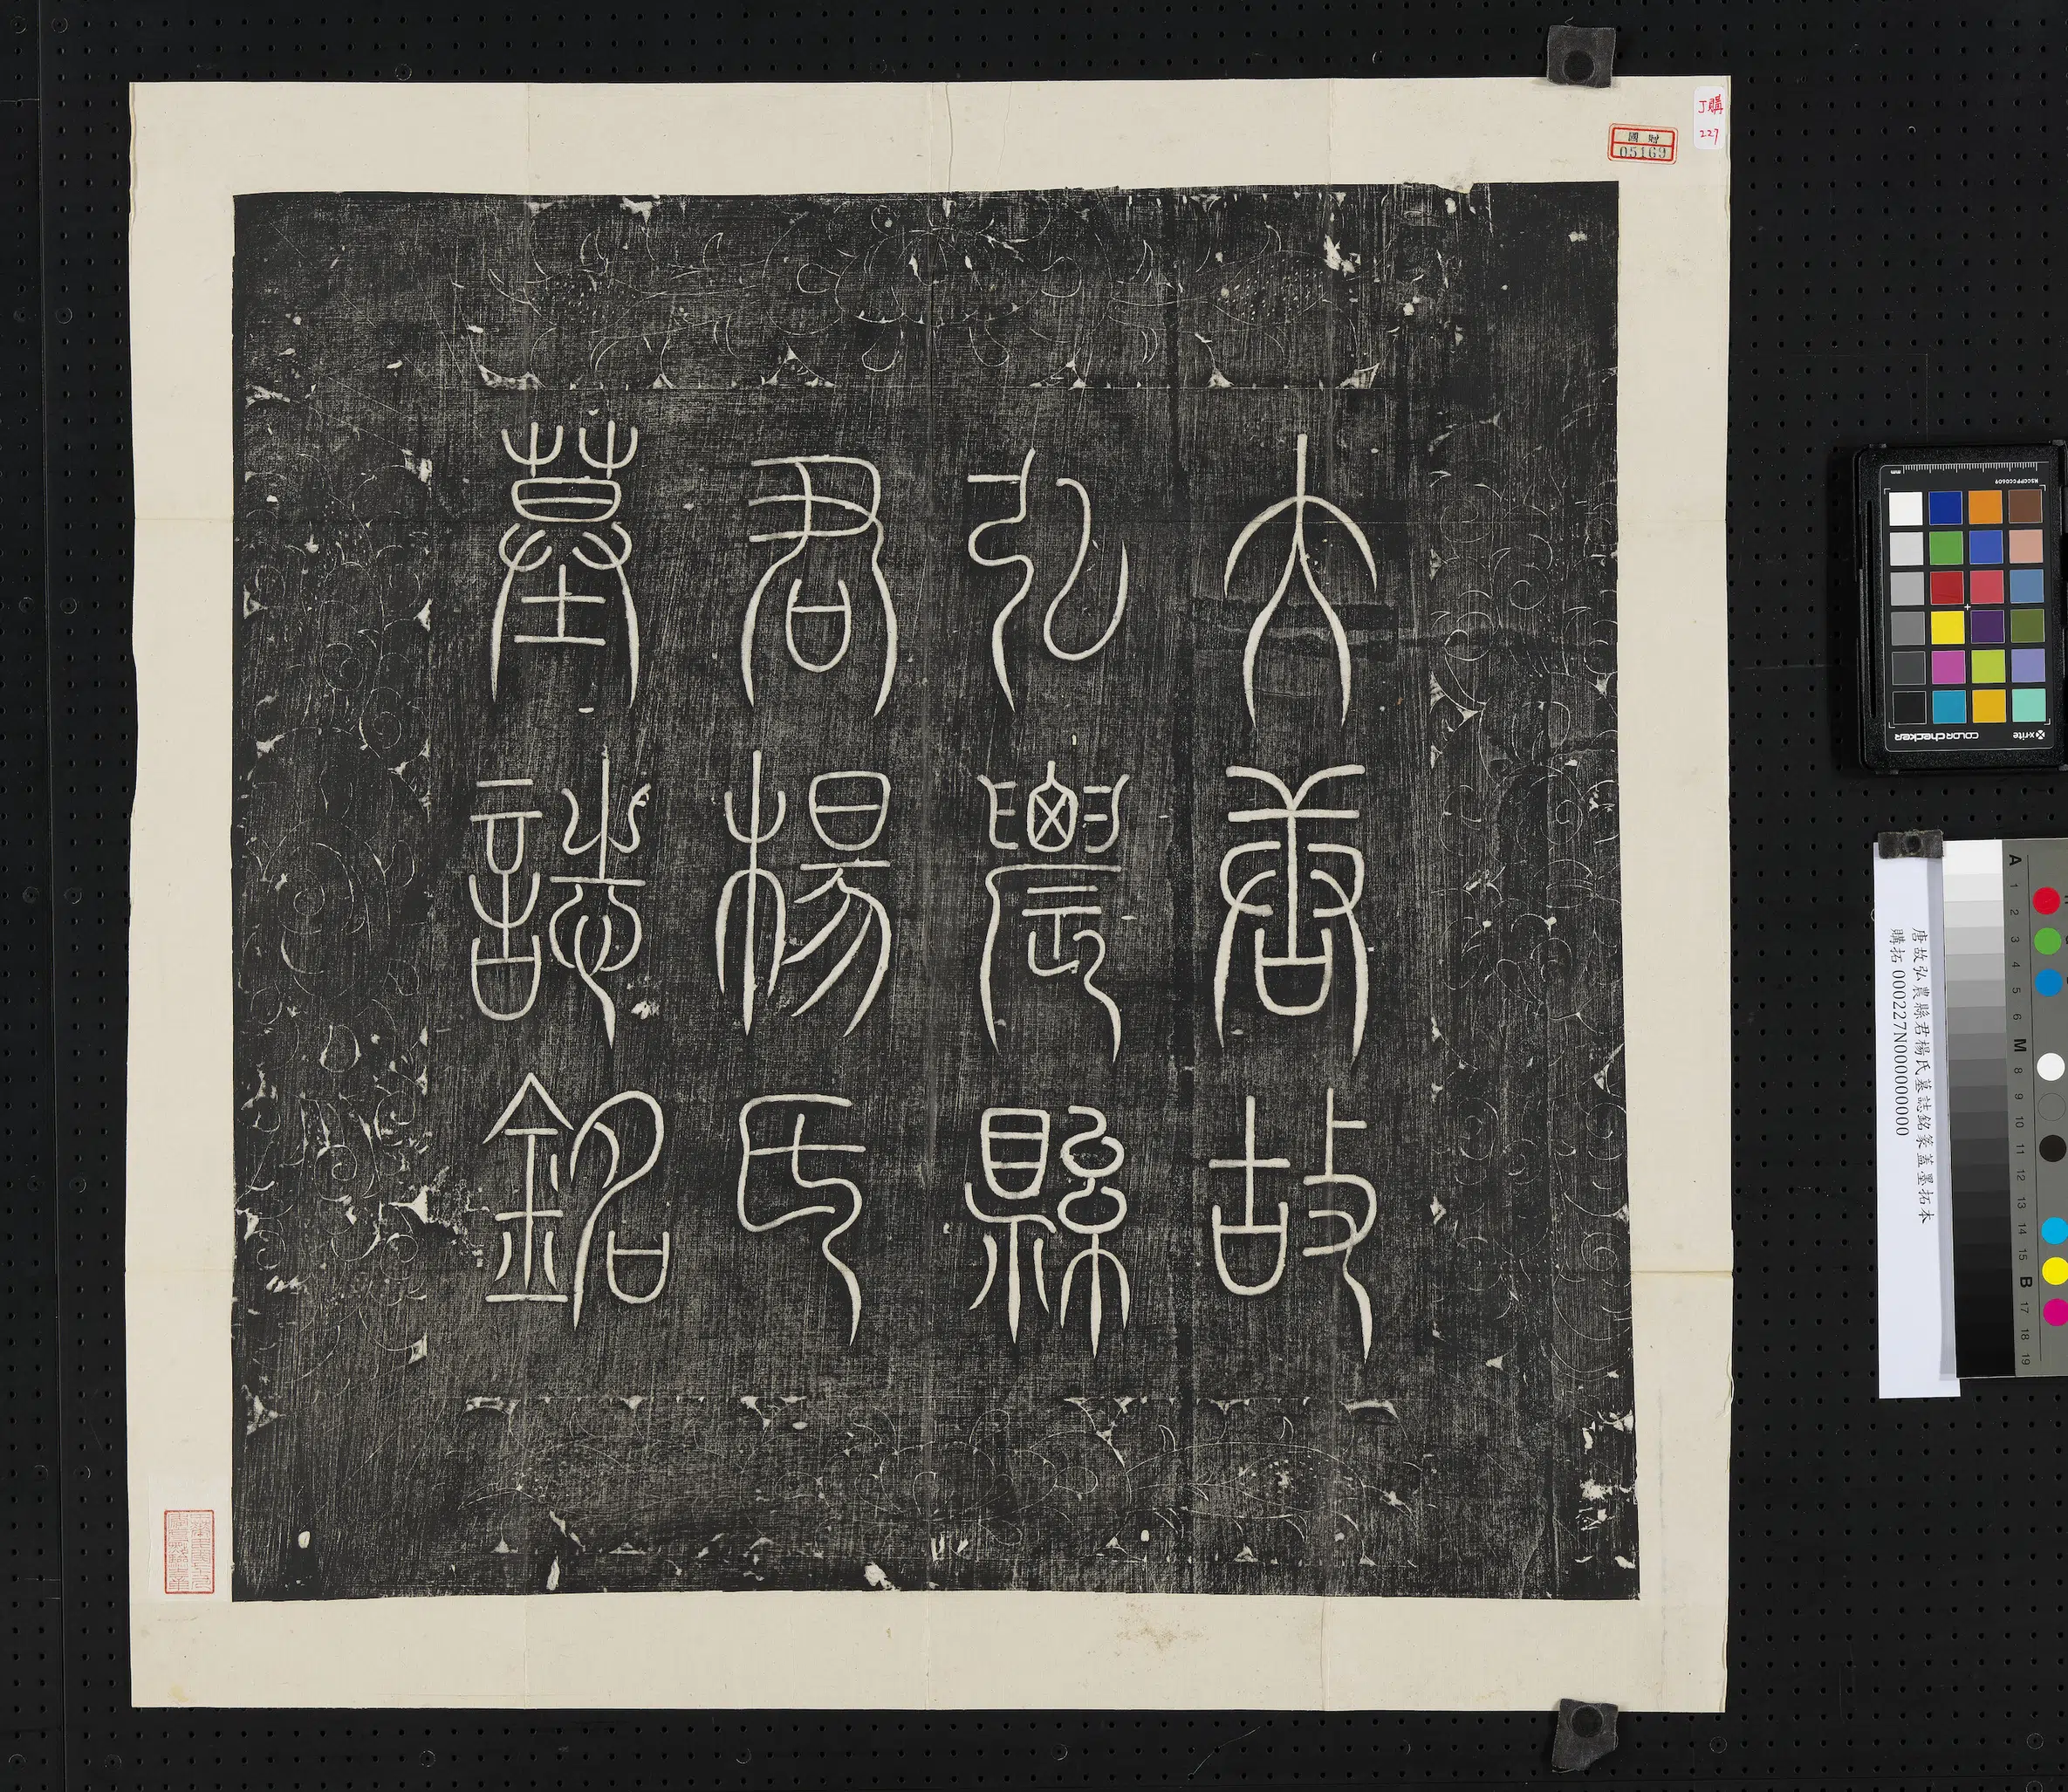 大唐故
弘農縣
君楊氏
墓誌銘
J購
227
國贈
05169
唐故弘農縣君楊氏墓誌銘篆蓋墨拓本
購拓 000227N000000000
x-rite
colorchecker
MSCCPPCC0609
A
1
2
3
4
5
6
M
8
9
10
11
12
13
14
15
B
17
18
19